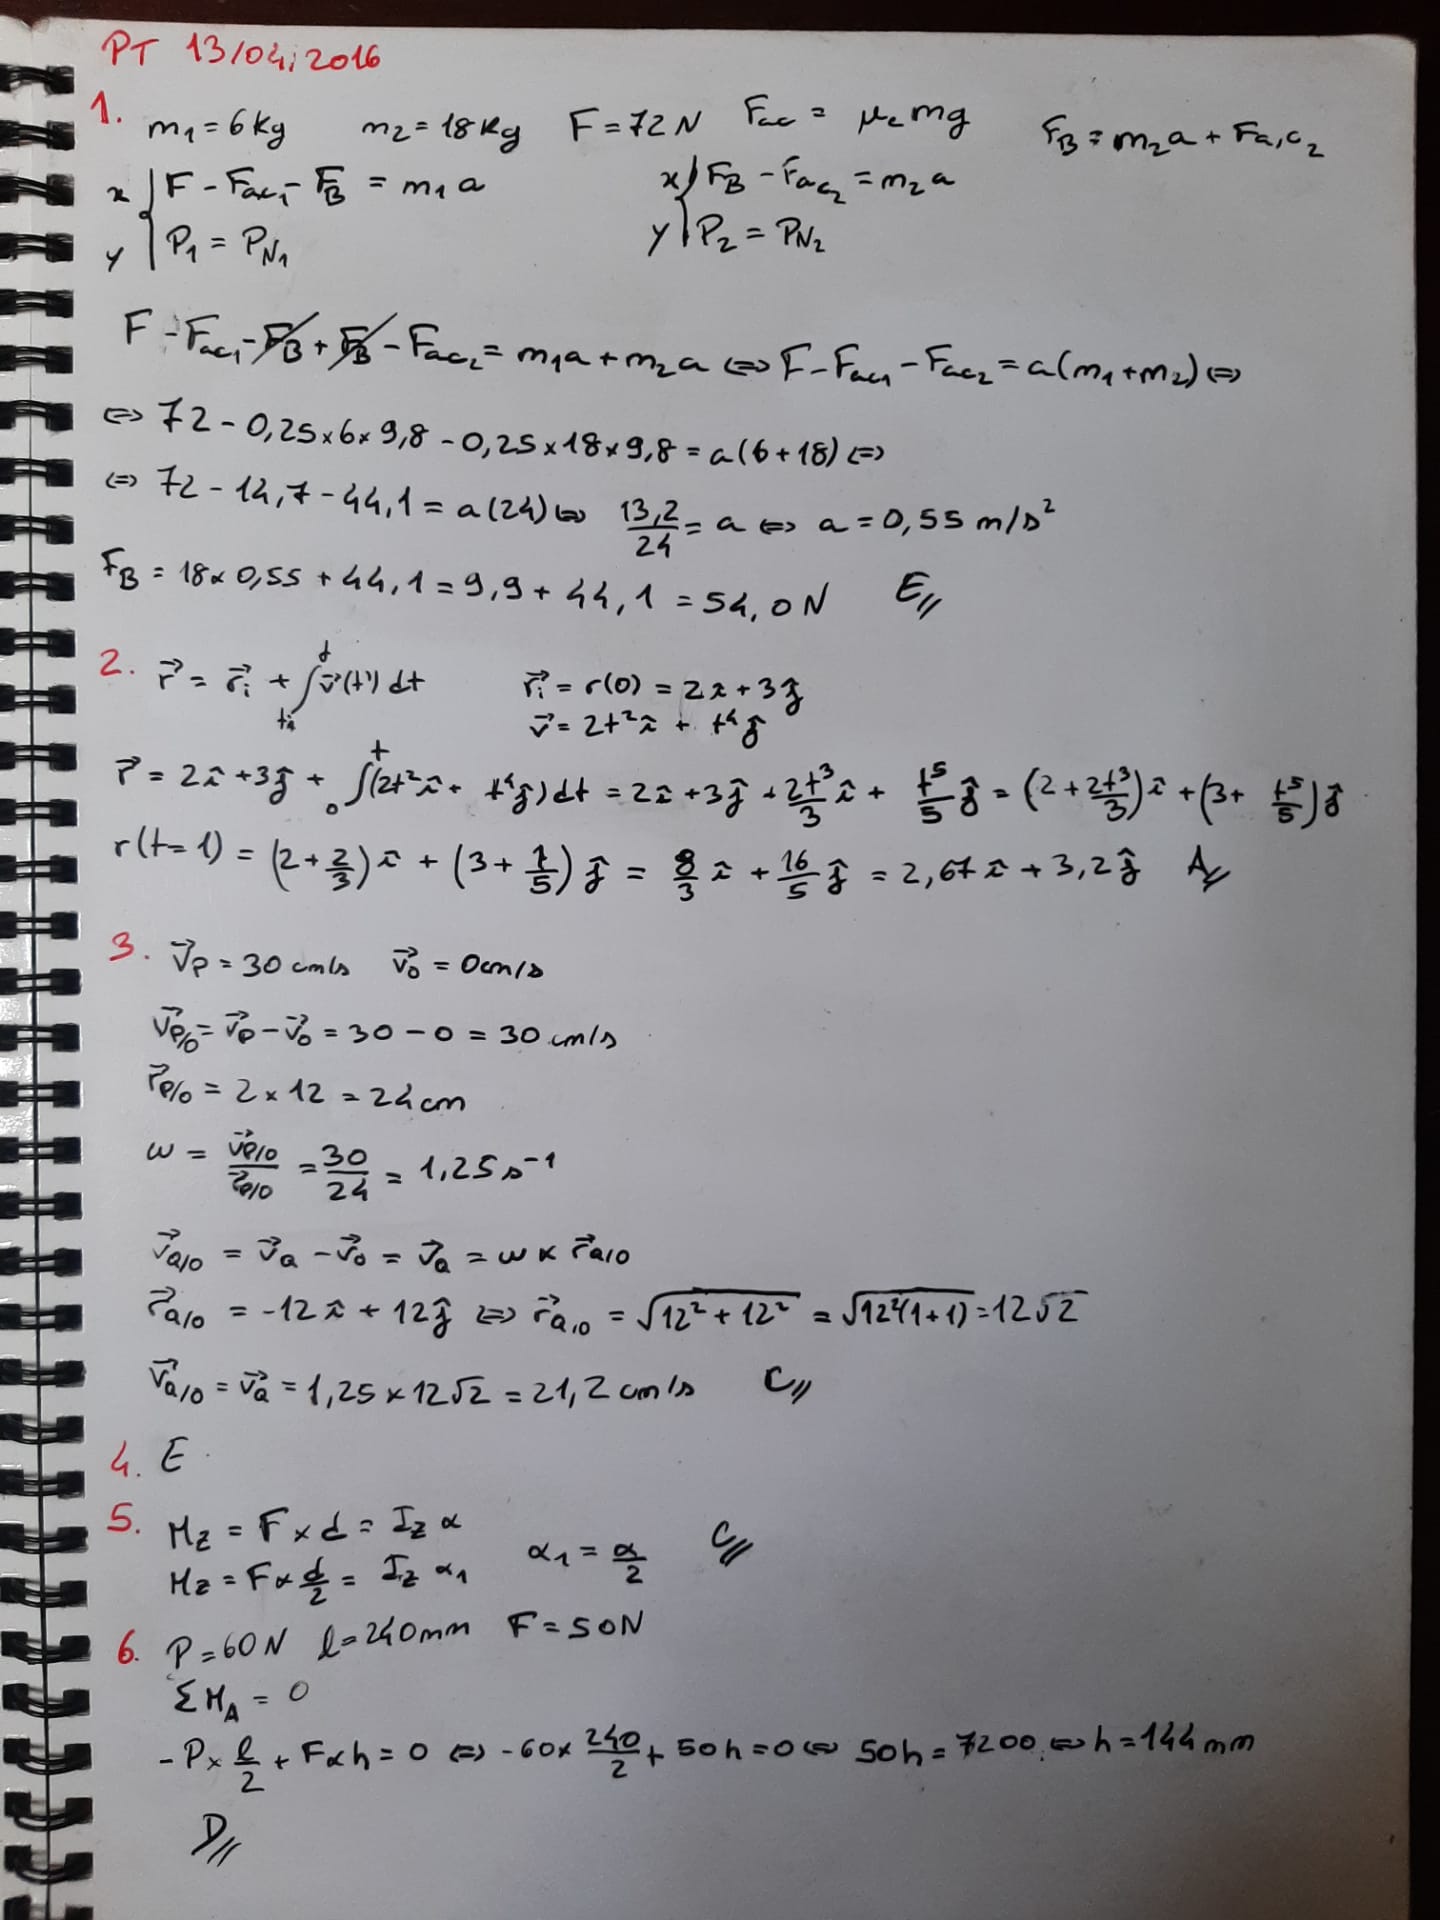 PT 13/04/2016
1. m₁=6Kg m₂=18Kg F=72N Fac = μc mg F_B = m₂a + Fa,c₂
x { F - Fac₁ - F_B = m₁a x { F_B - Fac₂ = m₂a
y { P₁ = P_N₁ y { P₂ = P_N₂
F - Fac₁ - F_B + F_B - Fac₂ = m₁a + m₂a ⇔ F - Fac₁ - Fac₂ = a(m₁+m₂) ⇔
⇔ 72 - 0,25×6×9,8 - 0,25×18×9,8 = a(6+18) ⇔
⇔ 72 - 14,7 - 44,1 = a(24) ⇔ 13,2/24 = a ⇔ a = 0,55 m/s²
F_B = 18×0,55 + 44,1 = 9,9 + 44,1 = 54,0N E//
2. r⃗ = r⃗i + ∫ti^t v⃗(t') dt r⃗i = r(0) = 2î + 3ĵ
v⃗ = 2t²î + t⁴ĵ
r⃗ = 2î + 3ĵ + ₀∫^t (2t²î + t⁴ĵ) dt = 2î + 3ĵ + 2t³/3 î + t⁵/5 ĵ = (2 + 2t³/3)î + (3 + t⁵/5)ĵ
r(t=1) = (2 + 2/3)î + (3 + 1/5)ĵ = 8/3 î + 16/5 ĵ = 2,67î + 3,2ĵ A//
3. v⃗p = 30 cm/s v⃗o = 0cm/s
v⃗p/o = v⃗p - v⃗o = 30 - 0 = 30 cm/s
r⃗p/o = 2 × 12 = 24cm
ω = v⃗p/o / r⃗p/o = 30/24 = 1,25 s⁻¹
v⃗a/o = v⃗a - v⃗o = v⃗a = ω × r⃗a/o
r⃗a/o = -12î + 12ĵ ⇔ r⃗a/o = √(12² + 12²) = √(12²(1+1)) = 12√2
v⃗a/o = v⃗a = 1,25 × 12√2 = 21,2 cm/s C//
4. E
5. Mz = F × d = Iz α
Mz = F × d/2 = Iz α₁ α₁ = α/2 C//
6. P = 60N l = 240mm F = 50N
ΣM_A = 0
-P × l/2 + F × h = 0 ⇔ -60 × 240/2 + 50h = 0 ⇔ 50h = 7200 ⇔ h = 144mm
D//